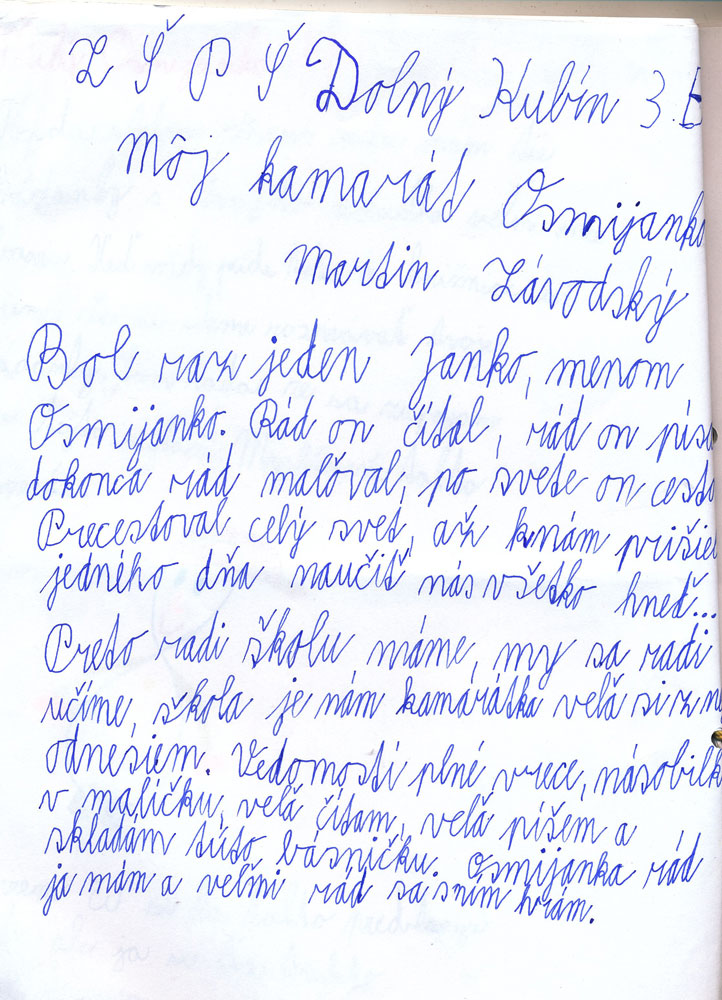 Z Š P Š Dolný Kubín 3. B
Môj kamarát Osmijanko
Martin Závodský
Bol raz jeden Janko, menom
Osmijanko. Rád on čítal, rád on písa
dokonca rád maľoval, po svete on cesto
Precestoval celý svet, až knám prišiel
jedného dňa naučiť nás všetko hneď...
Preto radi školu máme, my sa radi
učíme, škola je nám kamarátka veľa si z ne
odnesiem. Vedomostí plné vrece, násobilk
v malíčku, veľa čítam, veľa píšem a
skladám túto básničku. Osmijanka rád
ja mám a veľmi rád sa sním hrám.